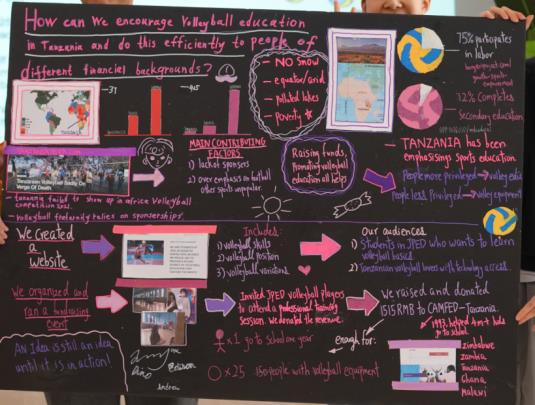 How can We encourage Volleyball education
In Tanzania and do this efficiently to people of
different financial backgrounds?
- NO Snow
- equator/arid
- polluted lakes
- Poverty *
75% participates
in labor
32% Completes
Secondary education
MAIN CONTRIBUTING
FACTORS
1) lack of sponsers
2) over emphasis on football
other sports unpopular.
Raising funds,
Promoting volleyball
education all helps
- TANZANIA has been
emphasising sports education
People more privileged → volley educa
People less Privileged → volley equipment
Tanzanian Volleyball Sadly On
Verge Of Death
- tanzania failed to show up in africa Volleyball
competition 2021.
- Volleyball fraternity relies on sponserships.
We Created
a
website
Includes:
1) volleyball skills
2) volleyball position
3) volleyball variations
Our audiences
1) Students in JPED who wants to learn
volleyball basics.
2) Tanzanian volleyball lovers with technology access.
We organized and
ran a fundraising
event
Invited JPED volleyball players
to attend a professional training
session. We donated the revenue.
We raised and donated
1515 RMB to CAMFED-Tanzania.
x1 go to school one year
enough for:
x25 150 people with volleyball equipment
zimbabwe
zambia
Tanzania
Ghana
Malawi
AN Idea is still an idea
until it is in action!